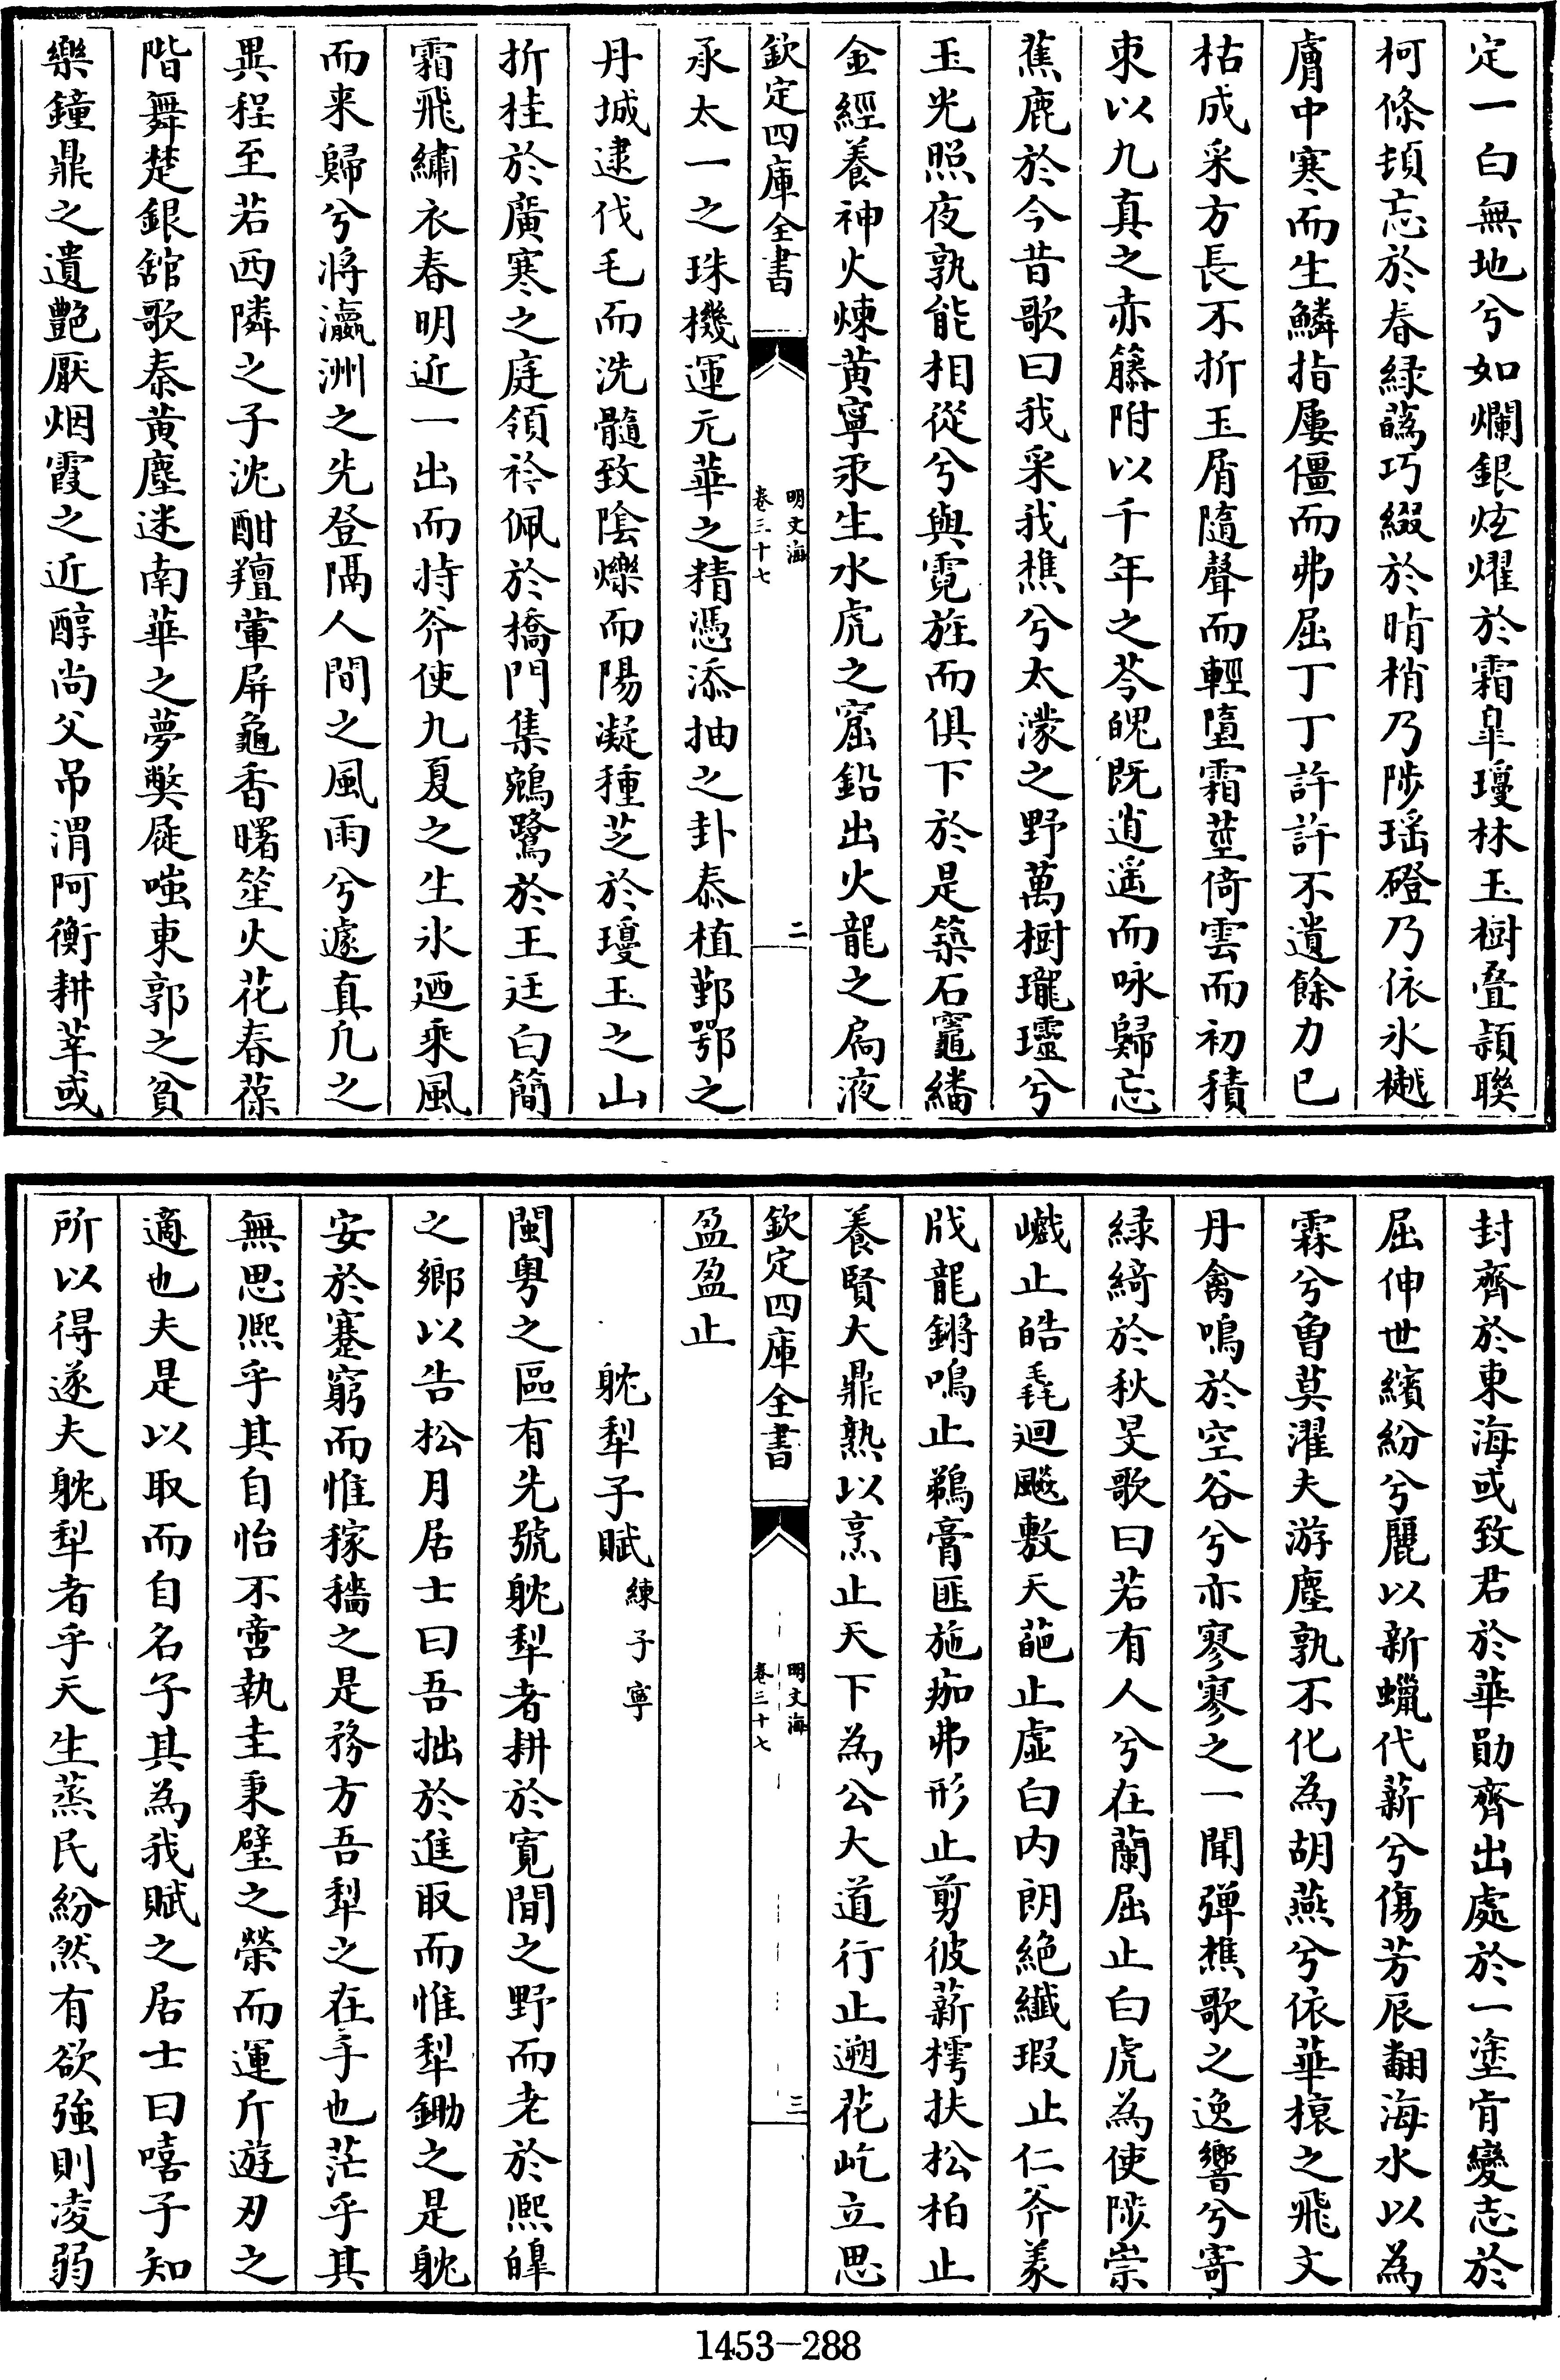 定一白無地兮如爛銀炫燿於霜臯瓊林玉樹疊頴聯
柯條頓忘於春緑蘤巧綴於暗梢乃陟瑶磴乃依氷樾
膚中寒而生鱗指屢僵而弗屈丁丁許許不遺餘力已
枯成采方長不折玉屑隨聲而輕墮霜莖倚雲而初積
束以九真之赤籐附以千年之苓皅既逍遥而咏歸忘
蕉鹿於今昔歌曰我采我樵兮太濛之野萬樹瓏璢兮
玉光照夜孰能相從兮與霓旌而俱下於是築石竈繙
金經養神火煉黄寧汞生水虎之窟鉛出火龍之扃液
欽定四庫全書
明文海
卷三十七
二
承太一之珠機運元華之精憑添抽之卦泰植鄞鄂之
丹城逮伐毛而洗髓致陰爍而陽凝種芝於瓊玉之山
折桂於廣寒之庭領衿佩於橋門集鵷鷺於王廷白簡
霜飛繡衣春明近一出而持斧使九夏之生氷廼乘風
而来歸兮將瀛洲之先登隔人間之風雨兮遽真凡之
異程至若西隣之子沈酣羶葷屏龜香曙笙火花春葆
階舞楚銀舘歌秦黄塵迷南華之夢獘屣嗤東郭之貧
樂鐘鼎之遺艶厭烟霞之近醇尚父吊渭阿衡耕莘或
封齊於東海或致君於華勛齊出處於一塗肯變志於
屈伸世繽紛兮麗以新蠟代薪兮傷芳辰翻海水以為
霖兮曾莫濯夫游塵孰不化為胡燕兮依華榱之飛文
丹禽鳴於空谷兮亦寥寥之一聞弹樵歌之逸響兮寄
緑綺於秋旻歌曰若有人兮在蘭屈止白虎為使陟崇
巇止皓毳迴飈敷天葩止虛白内朗絶纎瑕止仁斧義
戕龍鏘鳴止鵜膏匪施痂弗形止剪彼薪樗扶松柏止
養賢大鼎熟以烹止天下為公大道行止遡花屹立思
欽定四庫全書
明文海
卷三十七
三
盈盈止
躭犁子賦練子寧
閩粤之區有先號躭犁者耕於寛閒之野而老於熙皥
之鄉以告松月居士曰吾拙於進取而惟犁鋤之是躭
安於蹇窮而惟稼穡之是務方吾犁之在手也茫乎其
無思熙乎其自怡不啻執圭秉璧之榮而運斤遊刃之
適也夫是以取而自名子其為我賦之居士曰嘻子知
所以得遂夫躭犁者乎天生蒸民紛然有欲強則凌弱
1453-288